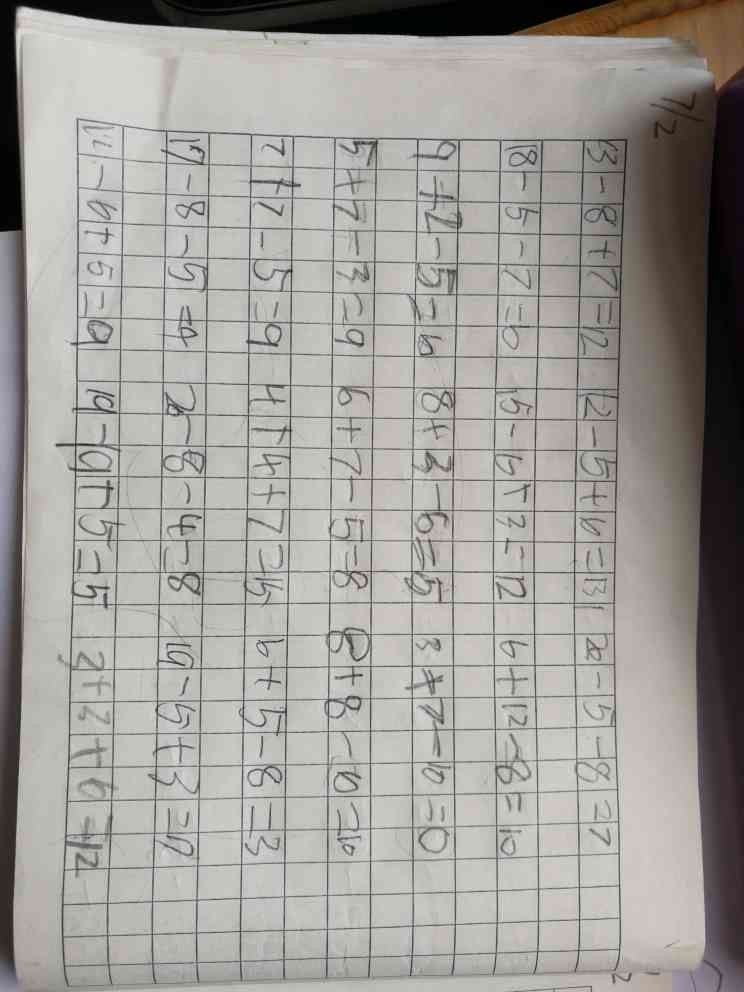 7/2
13-8+7=12 12-5+6=13 20-5-8=7
18-5-7=6 15-6+3=12 6+12-8=10
9+2-5=6 8+3-6=5 3+7-10=0
5+7-3=9 6+7-5=8 8+8-6=10
7+7-5=9 4+4+7=15 6+5-8=3
17-8-5=4 20-8-4=8 19-5+3=17
10-6+5=9 19-19+5=5 3+3+6=12